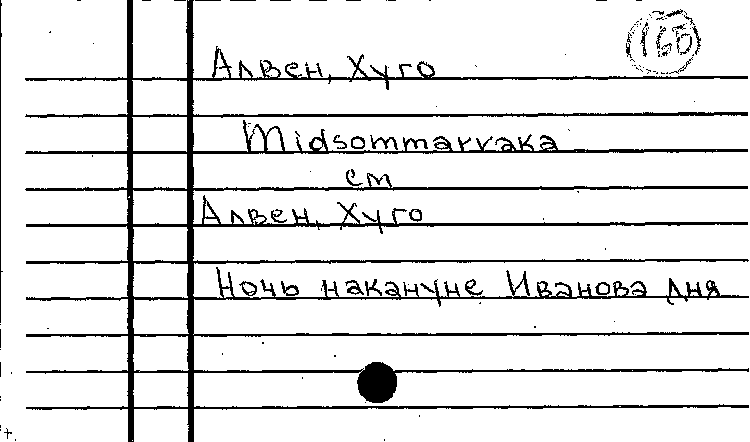 160
Алвен, Хуго
Midsommarvaka
см
Алвен, Хуго
Ночь накануне Иванова дня